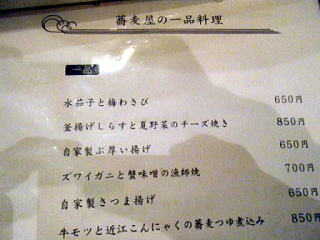 蕎麦屋の一品料理
一品
水茄子と梅わさび 650円
釜揚げしらすと夏野菜のチーズ焼き 850円
自家製ぶ厚い揚げ 650円
ズワイガニと蟹味噌の漁師焼 700円
自家製さつま揚げ 650円
牛モツと近江こんにゃくの蕎麦つゆ煮込み 850円